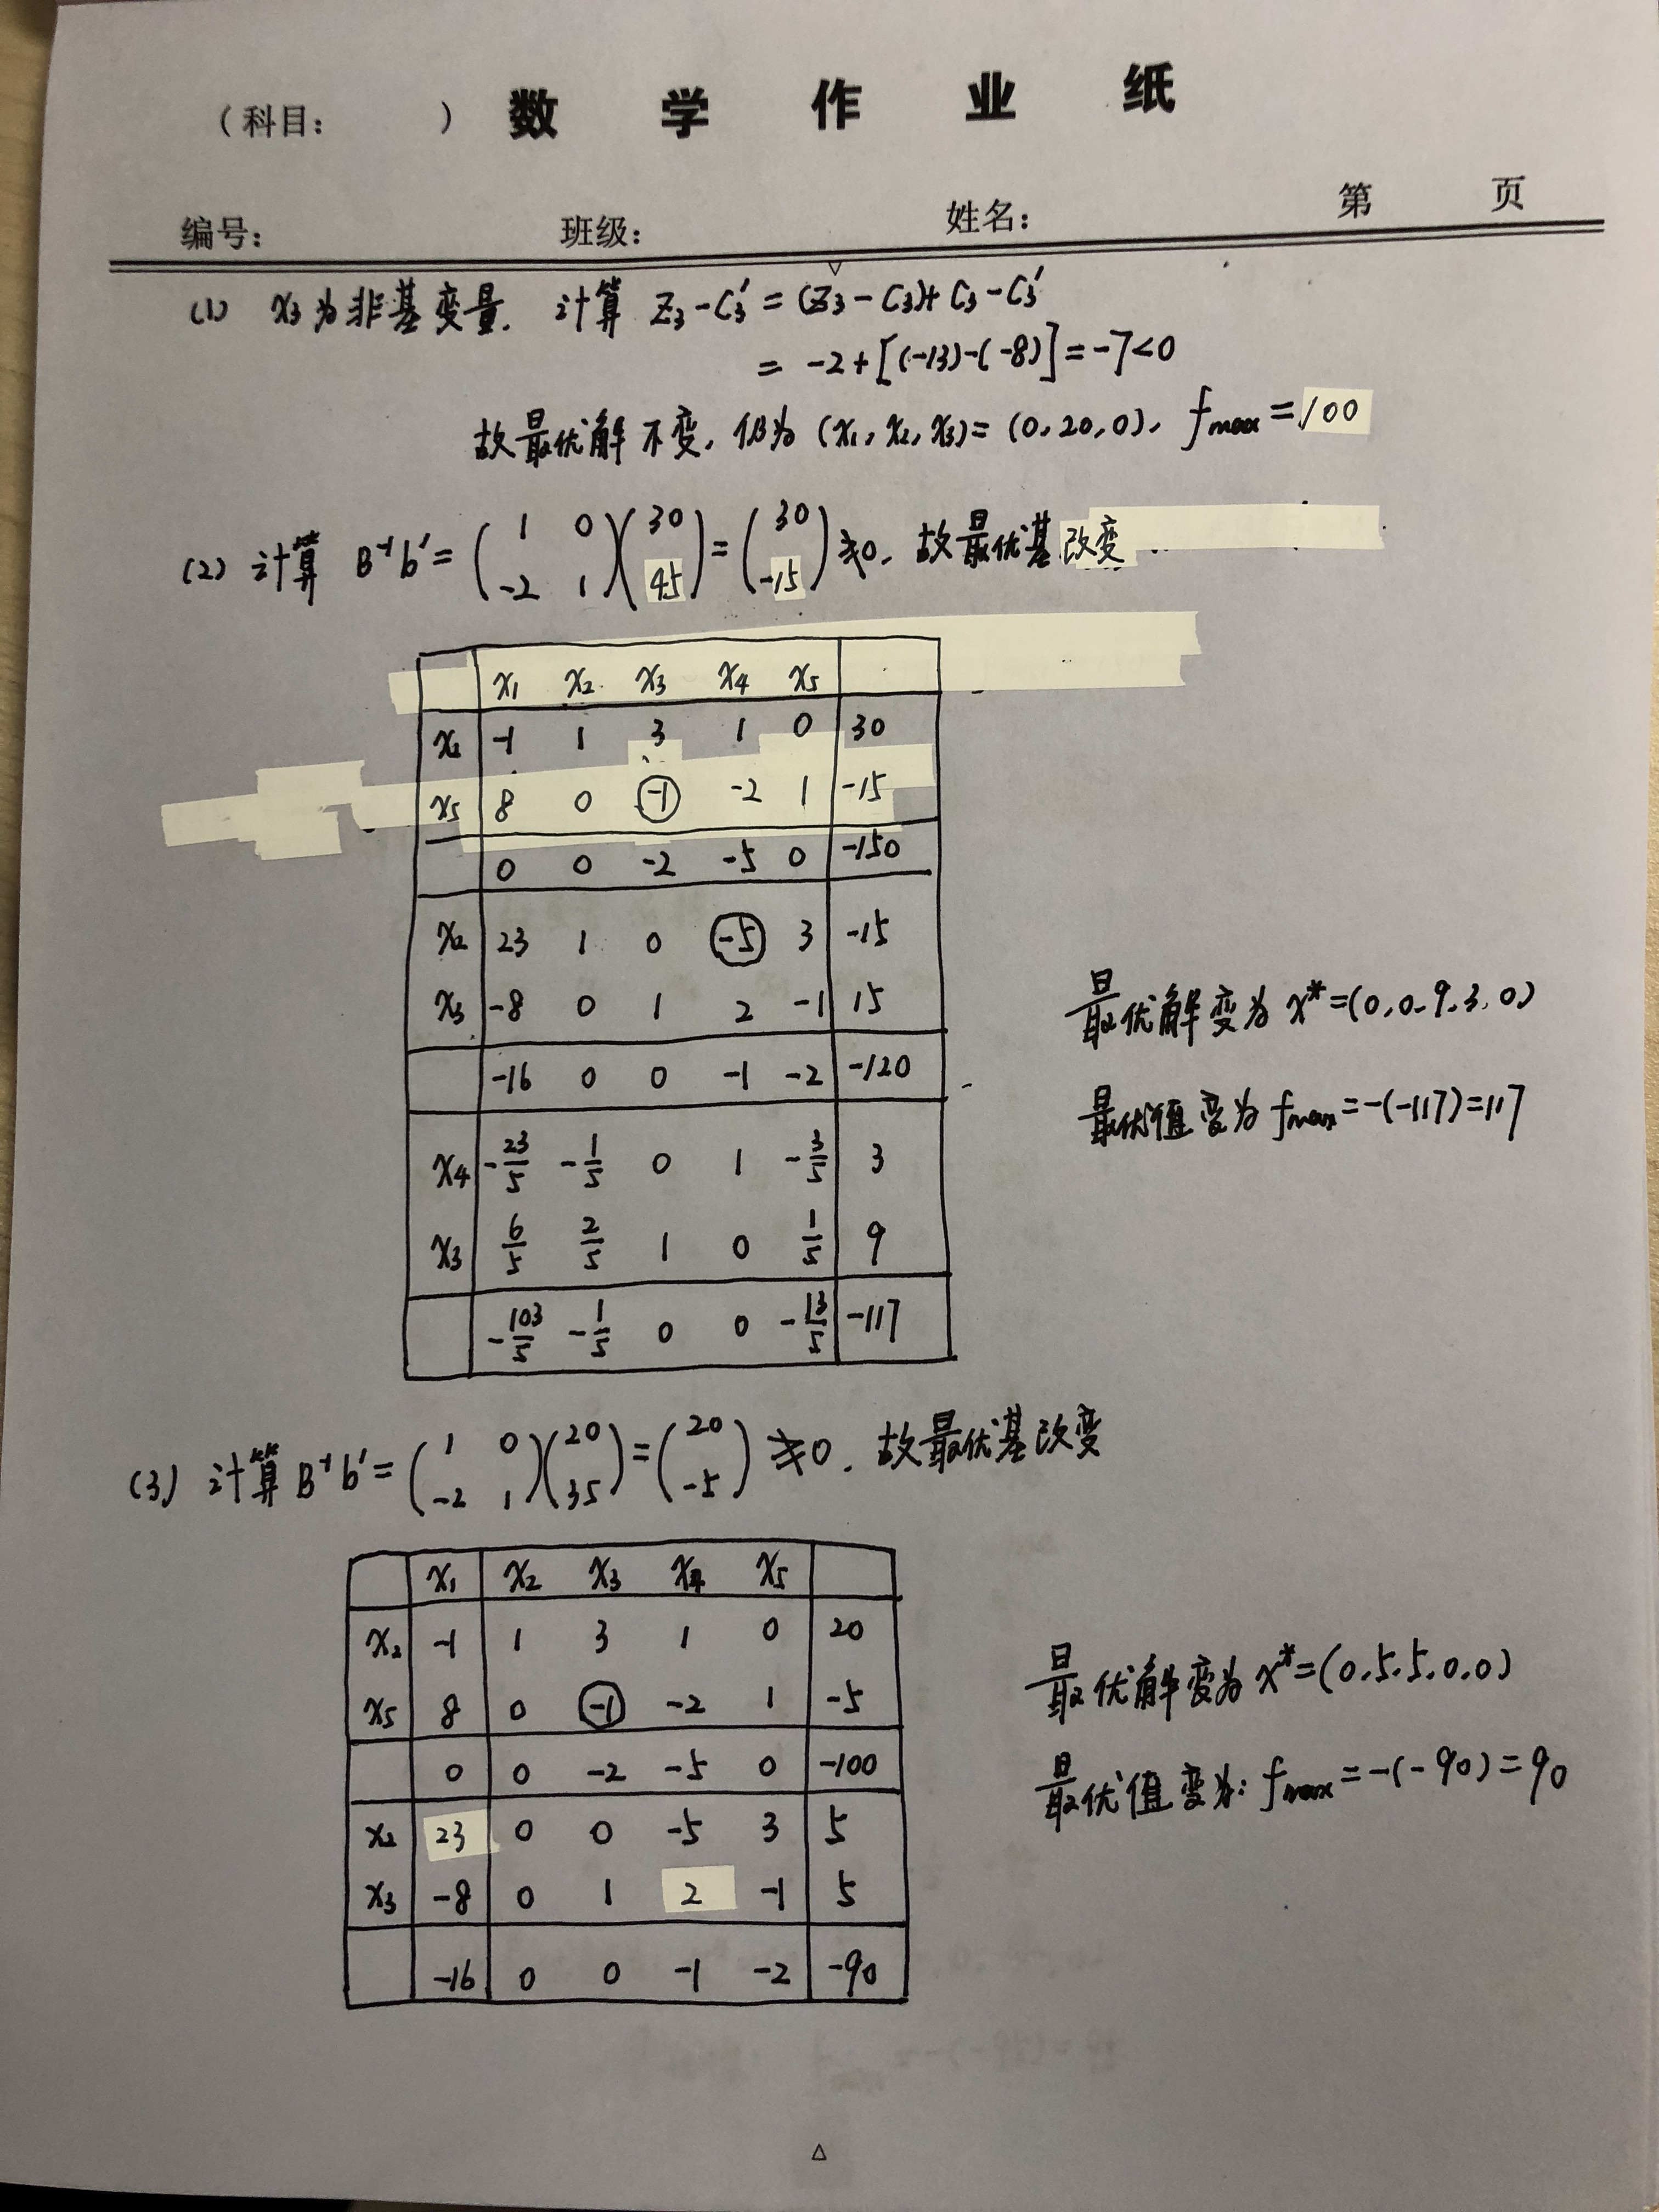 (科目:　　) 数 学 作 业 纸
编号:　　班级:　　姓名:　　第　　页
(1) x₃为非基变量. 计算 Z₃-C₃' = (Z₃-C₃)+C₃-C₃'
= -2+[(-13)-(-8)] = -7<0
故最优解不变, 仍为 (x₁, x₂, x₃) = (0, 20, 0), f_max = 100
(2) 计算 B⁻¹b' = (1 0; -2 1)(30; 45) = (30; -15) ≱0, 故最优基改变
x₁ x₂ x₃ x₄ x₅
x₂ -1 1 3 1 0 30
x₅ 8 0 -1 -2 1 -15
0 0 -2 -5 0 -150
x₂ 23 1 0 -5 3 -15
x₃ -8 0 1 2 -1 15
-16 0 0 -1 -2 -120
x₄ -23/5 -1/5 0 1 -3/5 3
x₃ 6/5 2/5 1 0 1/5 9
-103/5 -1/5 0 0 -13/5 -117
最优解变为 x*=(0, 0, 9, 3, 0)
最优值变为 f_max = -(-117) = 117
(3) 计算 B⁻¹b' = (1 0; -2 1)(20; 35) = (20; -5) ≱0. 故最优基改变
x₁ x₂ x₃ x₄ x₅
x₂ -1 1 3 1 0 20
x₅ 8 0 -1 -2 1 -5
0 0 -2 -5 0 -100
x₂ 23 0 0 -5 3 5
x₃ -8 0 1 2 -1 5
-16 0 0 -1 -2 -90
最优解变为 x*=(0, 5, 5, 0, 0)
最优值变为: f_max = -(-90) = 90